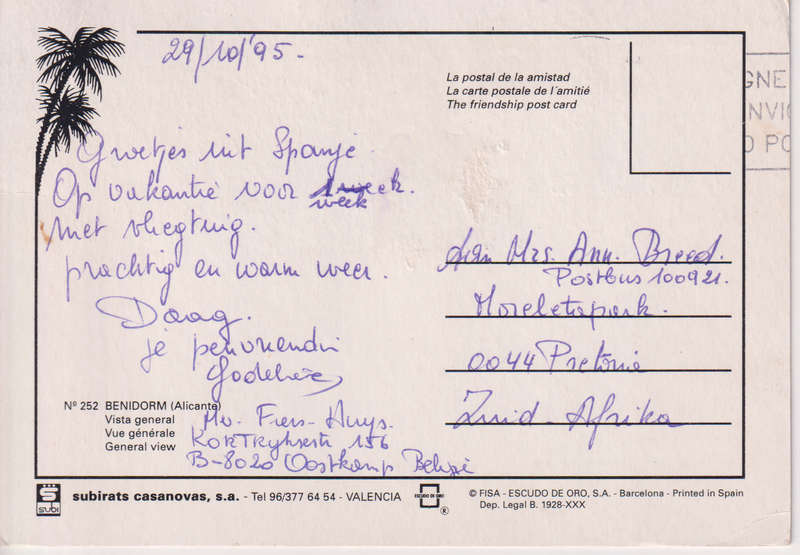 29/10/'95.
La postal de la amistad
La carte postale de l'amitié
The friendship post card
Groetjes uit Spanje
Op vakantie voor week.
week
met vliegtuig.
prachtig en warm weer.
Daag.
je penvriendin
Godelieve
Mev. Fiers-Huys.
KORTRyksestr 156
B-8020 Oostkamp België
Aan Mrs. Ann. Breed.
Postbus 100921.
Moreletapark.
0044 Pretoria
Zuid-Afrika
Nº 252 BENIDORM (Alicante)
Vista general
Vue générale
General view
SUBI
subirats casanovas, s.a. - Tel 96/377 64 54 - VALENCIA
ESCUDO DE ORO
®
© FISA - ESCUDO DE ORO, S.A. - Barcelona - Printed in Spain
Dep. Legal B. 1928-XXX